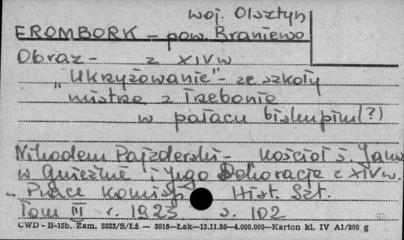 woj. Olsztyn
FROMBORK - pow. Braniewo
Obraz - z XIV w
"Ukrzyżowanie" - ze szkoły
mistrza z Trzebonie
w pałacu biskupim (?)
Nikodem Pajzderski - Kościół ś. Jana
w Gnieźnie i jego Dekoracje z XIV w.
- Prace Komisji Hist. Szt.
Tom III r. 1923 s. 102
CWD - B-15b. Zam. 5323/S/Łż - 2016-Łak-15.11.56-4.000.000-Karton kl. IV A1/200 g